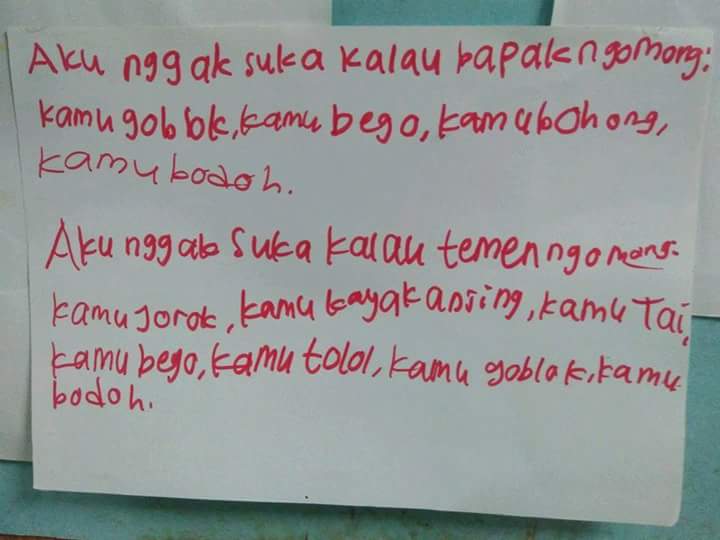 Aku nggak suka kalau bapak ngomong:
kamu goblok, kamu bego, kamu bohong,
kamu bodoh.
Aku nggab suka kalau temen ngomong.
kamu jorok, kamu kayak anjing, kamu Tai,
kamu bego, kamu tolol, kamu goblok, kamu
bodoh.